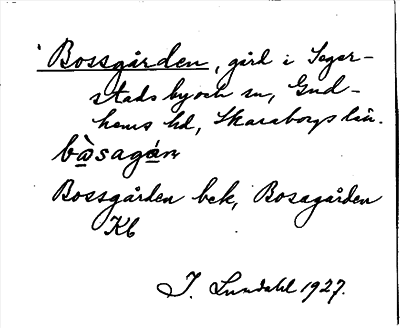 Bossgården, gård i Seger-
stads by och sn, Gud-
hems hd, Skaraborgs län.
bòsagán
Bossgården bek, Bosagården
Kb
I. Lundahl 1927.